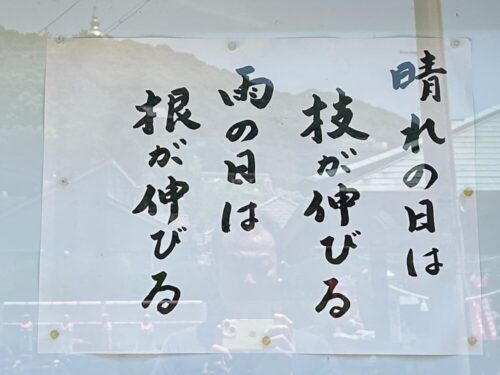 晴れの日は
枝が伸びる
雨の日は
根が伸びる